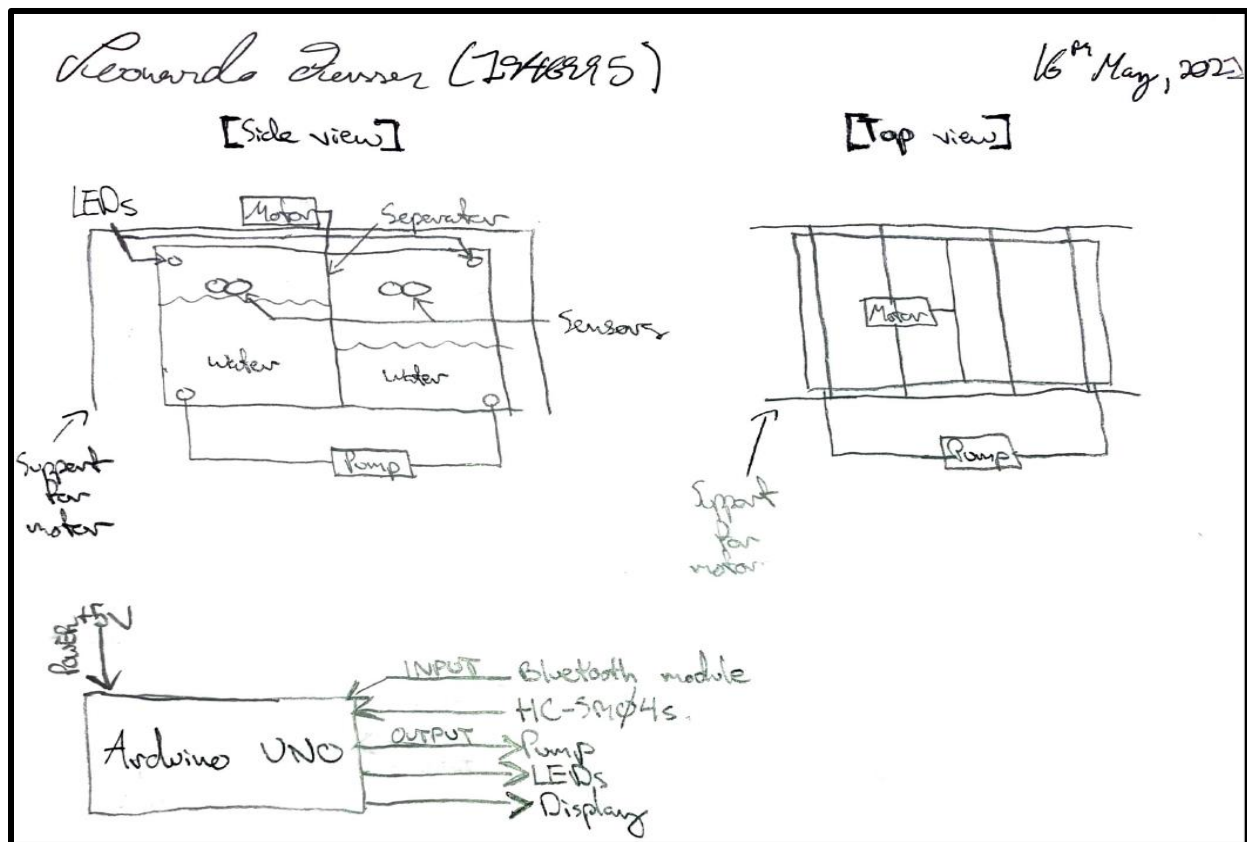 Leonardo (1946995)
16th May, 2022
[Side view]
[Top view]
LEDs
Motor
Separator
Sensors
water
water
Pump
Support
for
motor
Motor
Pump
Support
for
motor
+5V
POWER
Arduino UNO
INPUT
Bluetooth module
HC-SR04s.
OUTPUT
Pump
LEDs
Display